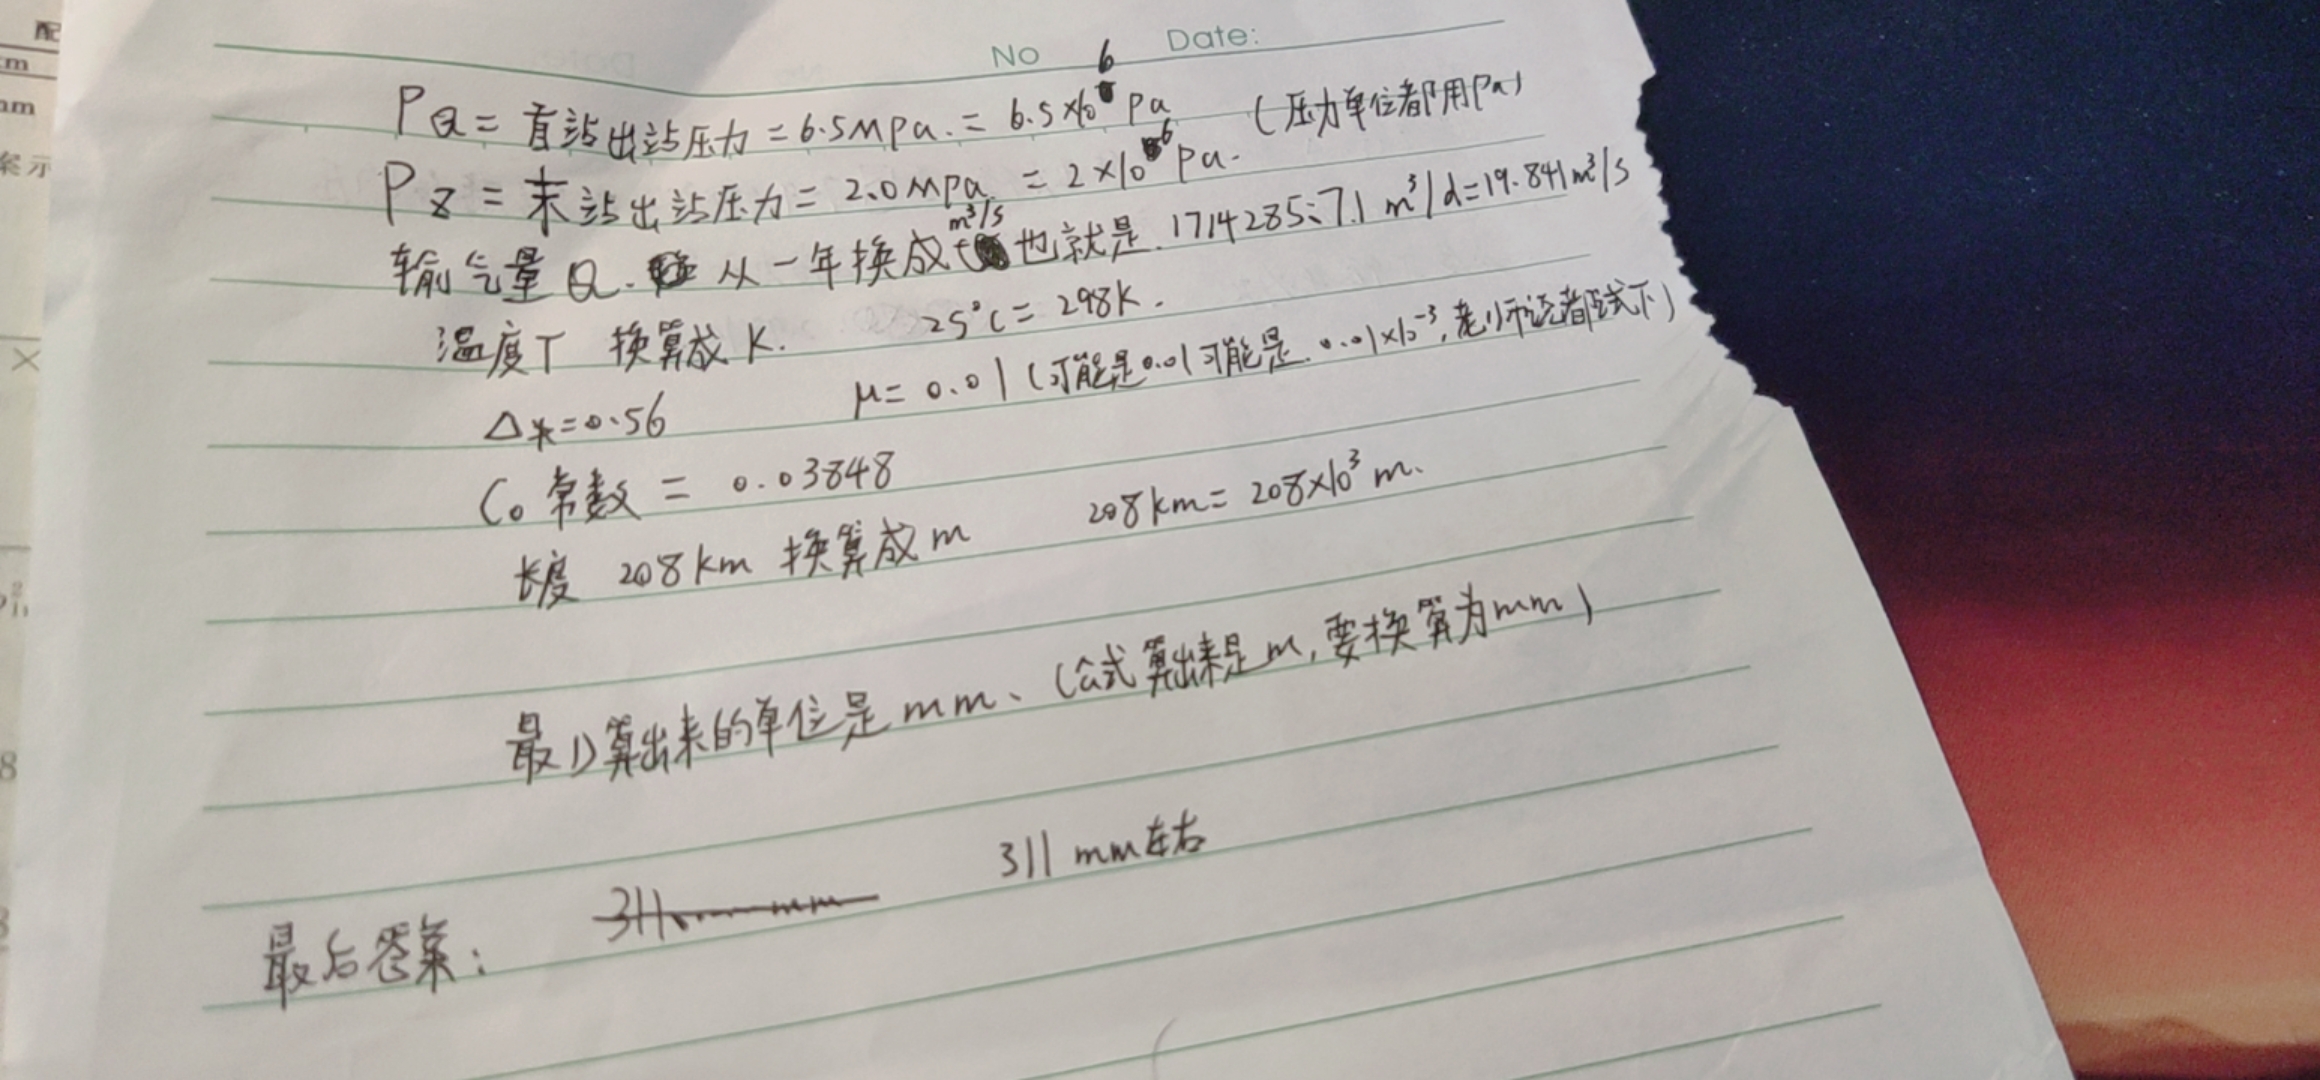 配
No 6 Date:
PQ = 首站出站压力 = 6.5MPa. = 6.5×10⁶ Pa (压力单位都用Pa)
PZ = 末站出站压力 = 2.0MPa = 2×10⁶ Pa.
输气量 Q. 从一年换成 m³/s 也就是. 1714285.7.1 m³/d=19.841m³/s
温度T 换算成 K. 25°C = 298K.
Δ*=0.56 μ= 0.01 (可能是0.01可能是. 0.01×10⁻³, 都试下)
C₀ 常数 = 0.03848
长度 208km 换算成m 208km= 208×10³ m.
最后算出来的单位是 mm、(公式算出来是m, 要换算为mm)
311 mm左右
最后答案: